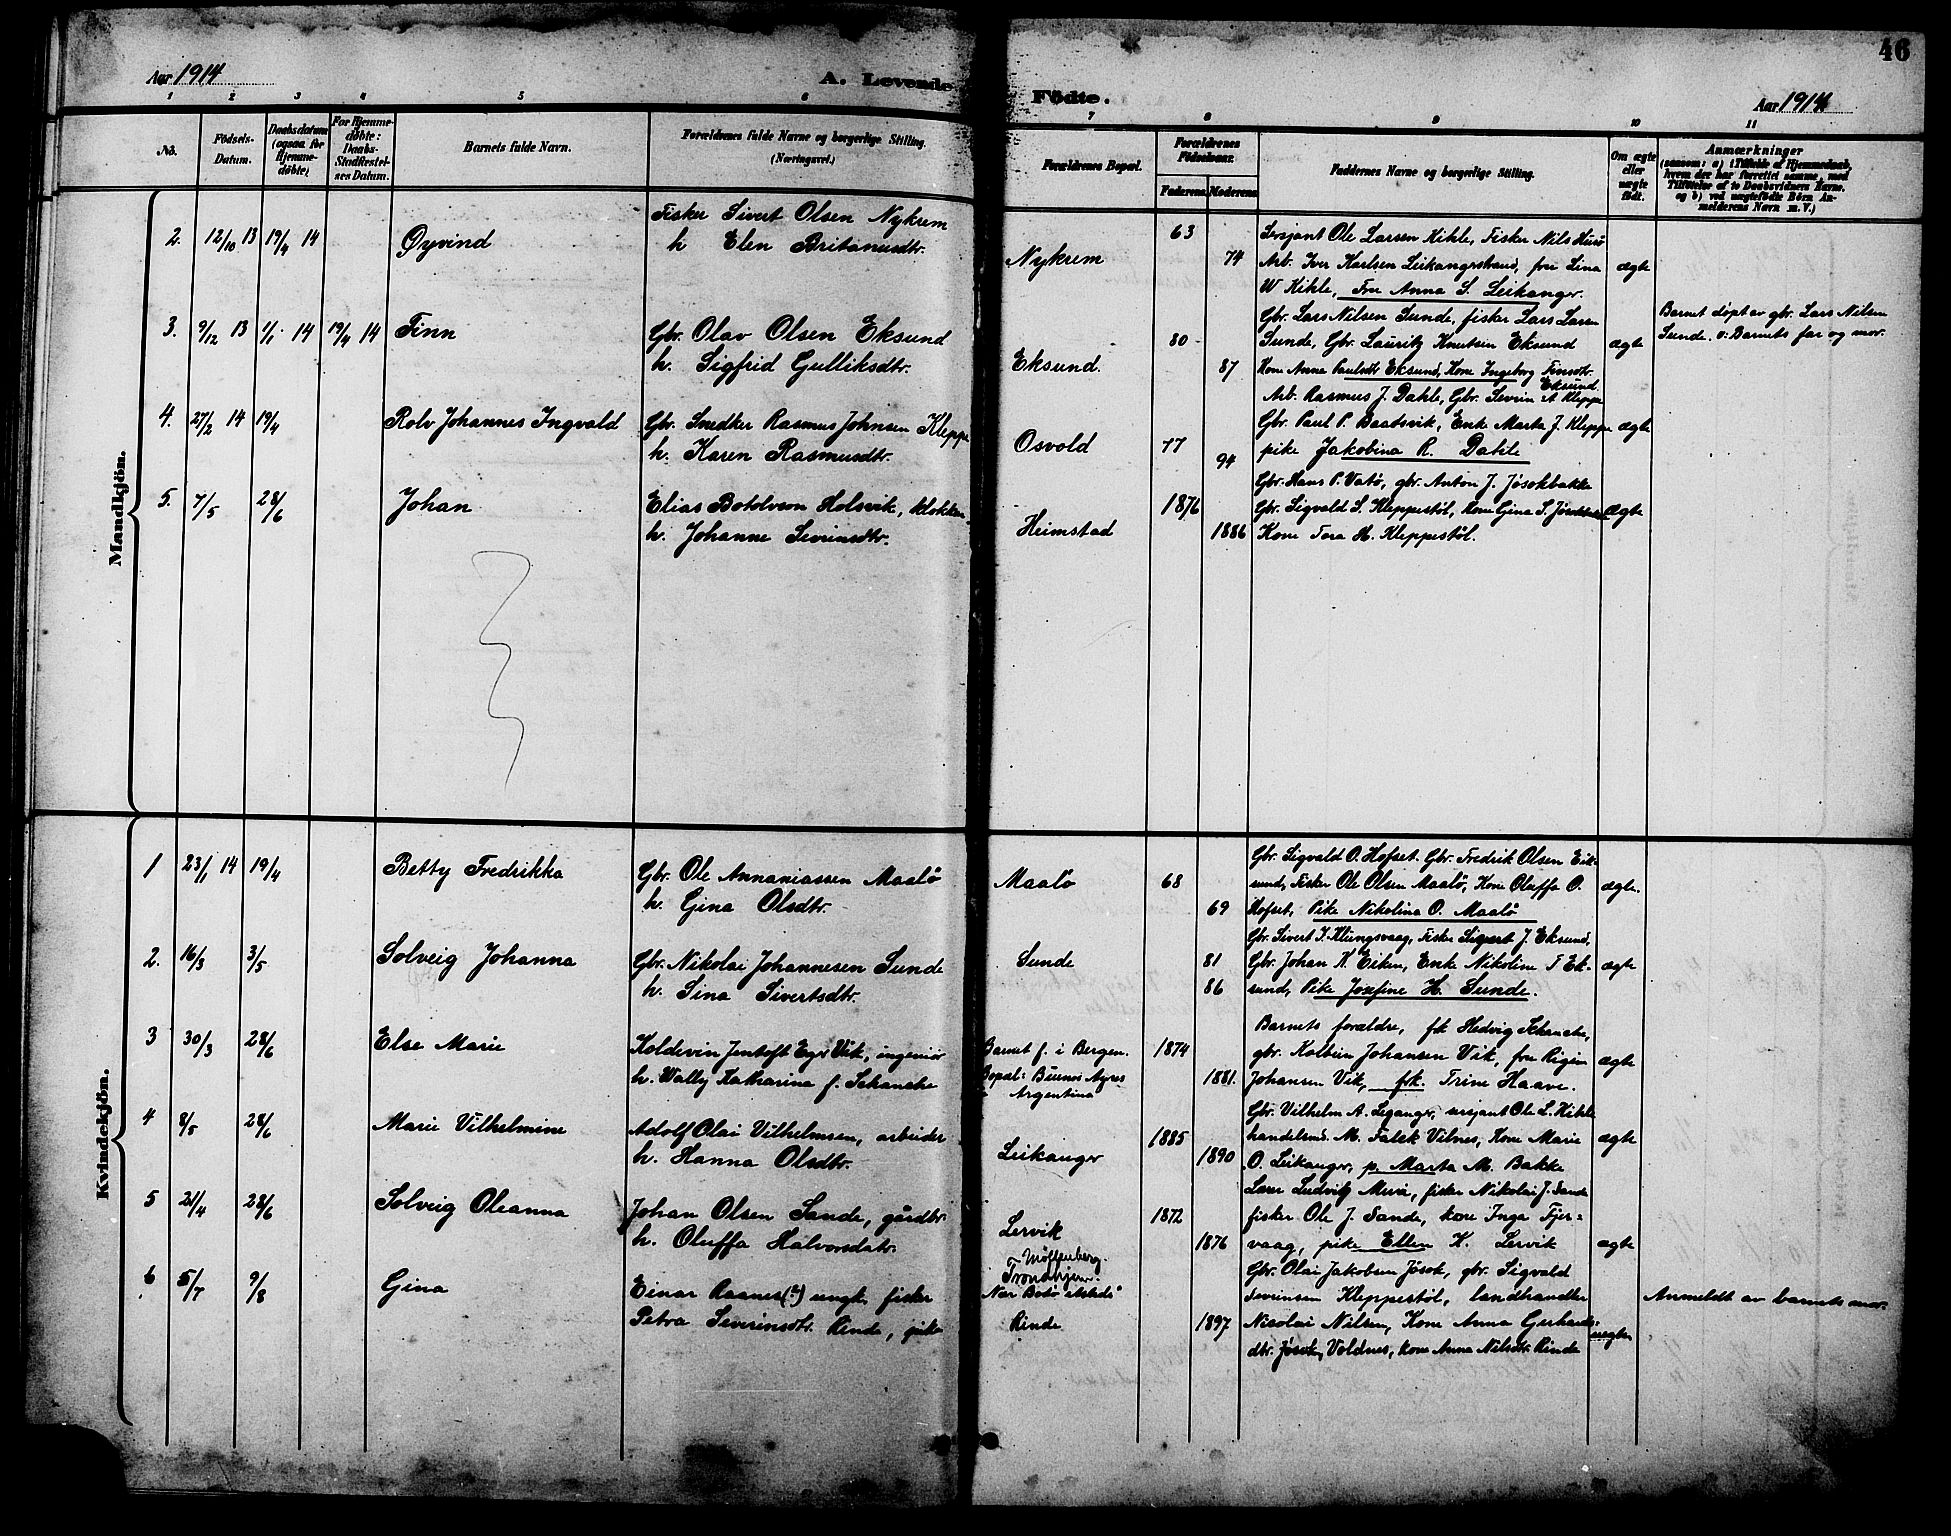 46
Aar 1914
A. Levende Födte.
Aar 1914
1 2 3 4 5 6 7 8 9 10 11
No.
Födsels-Datum.
Daabsdatum (ogsaa for Hjemme-döbte)
For Hjemme-döbte: Daabs-Stadfæstel-ses Datum.
Barnets fulde Navn.
Forældrenes fulde Navne og borgerlige Stilling. (Næringsvei.)
Forældrenes Bopæl.
Forældrenes Födselsaar.
Faderens. Moderens.
Faddernes Navne og borgerlige Stilling.
Om ægte eller uægte födt.
Anmærkninger
(saasom: a) i Tilfælde af Hjemmedaab,
hvem der har forrettet samme, med
Tilföielse af to Daabsvidners Navne,
og b) ved uægtefödte Börn An-
melderens Navn m. V.)
Mandkjön.
2. 12/10 13 19/4 14 Øyvind
Fisker Sivert Olsen Nykrem
h Elen Britanusdtr.
Nykrem
63
74
Sersjant Ole Larsen Kihle, Fisker Nils Husö
Arb. Iver Karlsen Leikangerstrand, fru Lina
W Kihle, Fru Anna S. Leikanger.
ægte
3. 9/12 13 1/1 14 19/4 14 Finn
Gbr. Olav Olsen Eksund
h. Sigfrid Gulliksdtr.
Eksund.
80
87
Gbr. Lars Nilsen Sunde, fisker Lars Larsen
Sunde, Gbr. Lauritz Knutsen Eksund
Kone Anna Paulsdtr Eksund, Kone Ingeborg Finsdtr.
Eksund.
ægte
Barnet döpt av gbr. Lars Nilsen
Sunde. v: Barnets far og mor.
4. 27/2 14 19/4 Rolv Johannes Ingvald
Gbr. Snedker Rasmus Johnsen Kleppe
h. Karen Rasmusdtr.
Osvold
77
94
Arb. Rasmus J. Dahle, Gbr. Severin A Kleppe
Gbr. Paul P. Baadsvik, Enke Marta J. Kleppe
pike Jakobina R. Dahle
ægte
5. 7/5 28/6 Johan
Elias Botolvson Holsvik, klokker
h. Johanne Severinsdtr.
Heimstad
1876
1886
Gbr. Hans P. Vatö, gbr. Anton J. Jösokbakke
Gbr. Sigvald S. Kleppestöl, Kone Gina S. Jösokbakke
Kone Tora M. Kleppestöl.
ægte
Kvindekjön.
1 23/1 14 19/4 Betty Fredrikka
Gbr. Ole Annaniassen Maalö
h. Gina Olsdtr.
Maalö
68
69
Gbr. Sigvald O. Hofset. Gbr. Fredrik Olsen Eik-
sund, Fisker Ole Olsen Maalö, Kone Oluffa O.
Hofset, Pike Nikolina O. Maalö
ægte.
2. 16/3 3/5 Solveig Johanna
Gbr. Nikolai Johannesen Sunde
h. Sina Sivertsdtr.
Sunde
81
86
Gbr. Sivert K. Klungsvaag, Fisker Sigvart J. Eksund,
Gbr. Johan K. Eiken, Enke Nikoline T Ek-
sund, Pike Josefine H. Sunde.
ægte
3 30/3 28/6 Else Marie
Koldevin Jentoft Egir Vik, ingeniör
h. Wally Katharina f. Schanche
Barnet f. i Bergen.
Bopæl: Buenos Ayres
Argentina
1874
1881.
Barnets forældre, frk Hedvig Schanche,
gbr. Kolbein Johansen Vik, fru Rigen
Johansen Vik, frk. Trine Haave.
ægte
4 8/5 28/6 Marie Vilhelmine
Adolf Olai Vilhelmsen, arbeider
h. Hanna Olsdtr.
Leikanger
1885
1890
Gbr. Vilhelm A. Leganger, sersjant Ole L. Kihle
handelsmd. M. Falck Vilnes, Kone Marie
O. Leikanger, p. Marta M. Bakke
ægte
5 21/4 28/6 Solveig Oleanna
Johan Olsen Sande, gårdbr.
h. Oluffa Halvorsdatr.
Lervik
1872
1876
Lærer Ludvig Myre, fisker Nikolai J. Sande
fisker Ole J. Sande, kone Inga Tjer-
vaag, pike Ellen K. Lervik
ægte
6 5/7 9/8 Gina
Einar Raanes(?) ungk, fisker
Petra Severinsdtr. Rinde, pike
Möllenberg.
Trondhjem.
Rinde
1897
Gbr. Olai Jakobsen Jösok, gbr. Sigvald
Severinsen Kleppestöl, landhandler
Nicolai Nilsen, Kone Anna Gerhards-
dtr. Jösok, Voldnes, kone Anna Nilsdtr Rinde
uegte
Anmeldt av barnets mor.